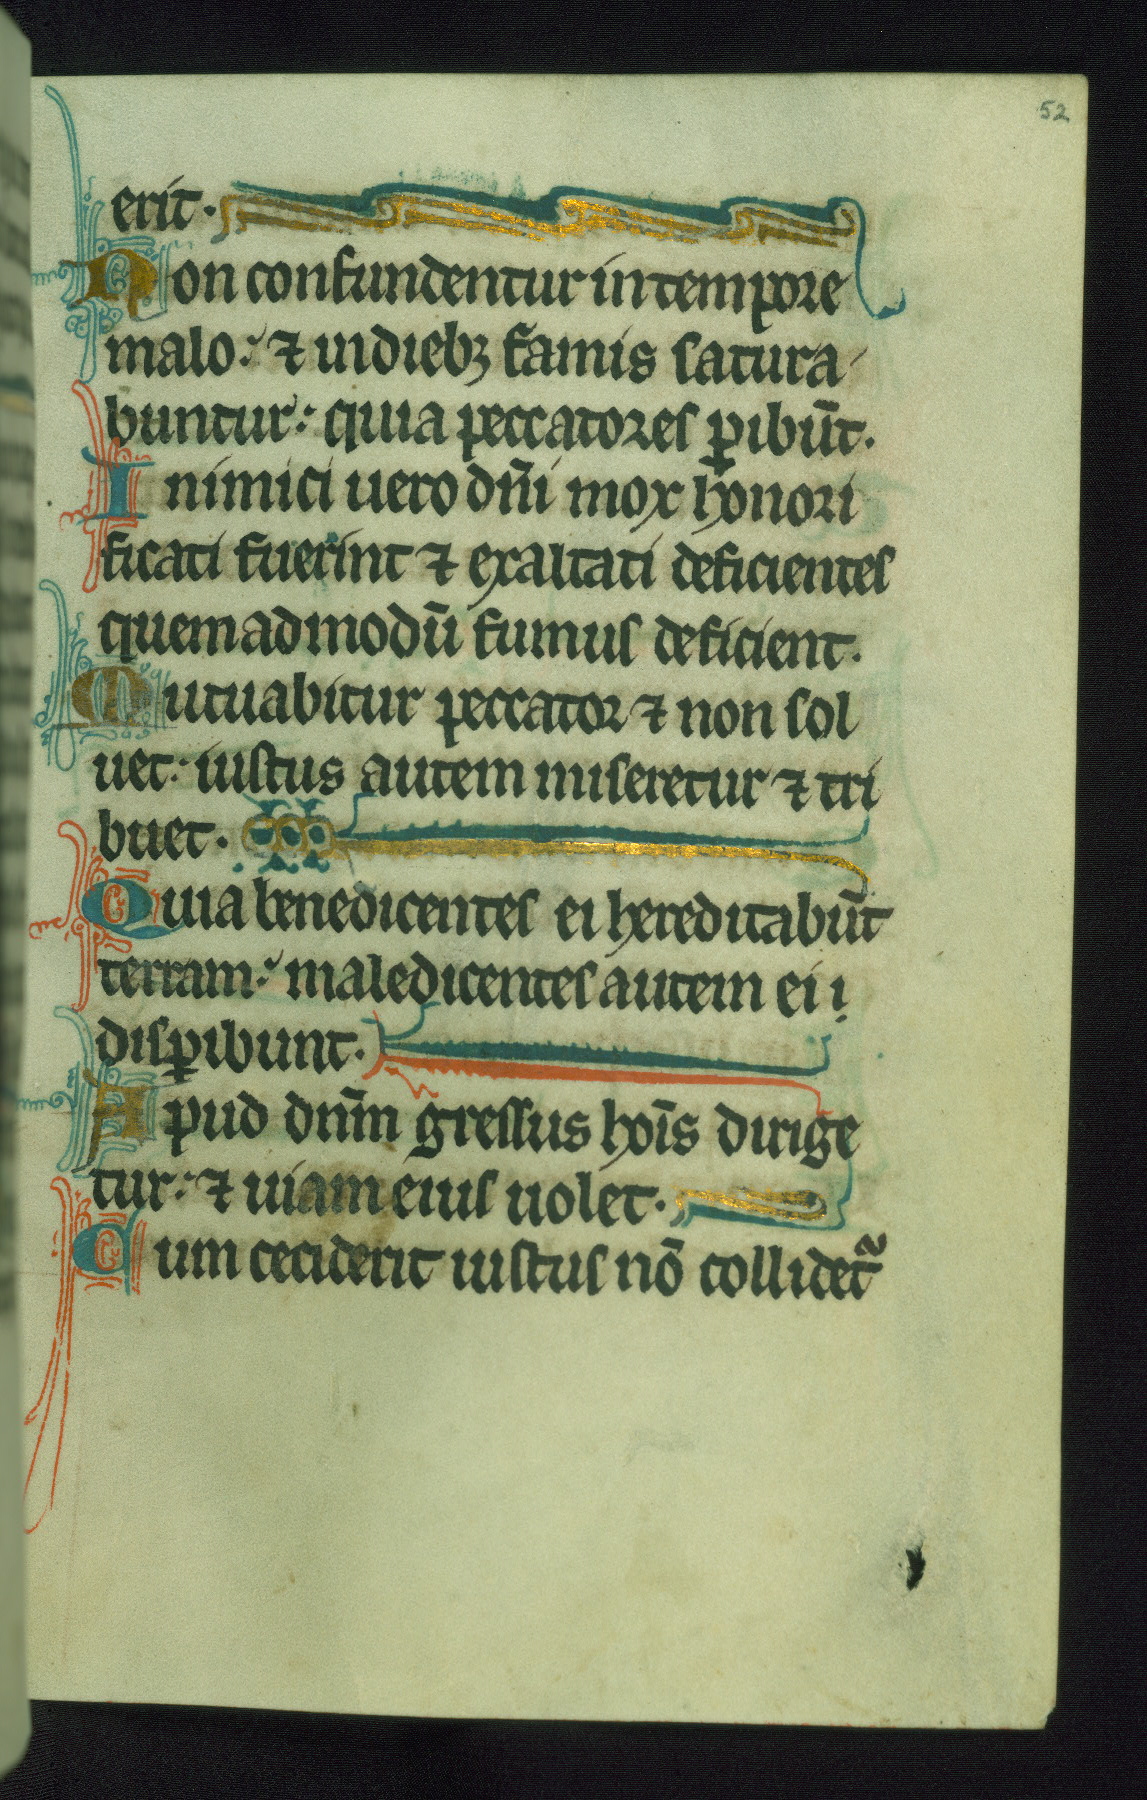 52
erit.
Non confundentur in tempore
malo: ⁊ in diebꝫ famis satura
buntur: quia peccatores ꝑibūt.
Inimici uero dn̄i mox honori
ficati fuerint ⁊ exaltati deficientes
quemadmodū fumus deficient.
Mutuabitur peccator ⁊ non sol
uet: iustus autem miseretur ⁊ tri
buet.
Quia benedicentes ei hereditabūt
terram: maledicentes autem ei
disꝑibunt.
Apud dnm̄ gressus hoīs dirige
tur: ⁊ uiam eius uolet.
Cum ceciderit iustus nō collidet᷑